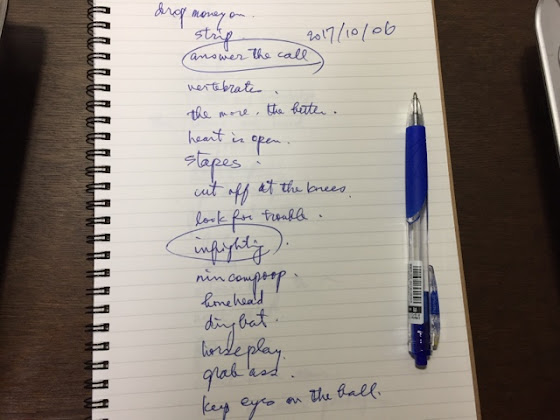 drop money on.
strip.
2017/10/06
answer the call
vertebrate.
the more. the better.
heart is open.
stapes.
cut off at the knees.
look for trouble.
infighting.
nincompoop.
bonehead
dingbat.
horseplay.
grab ass.
keep eyes on the ball.